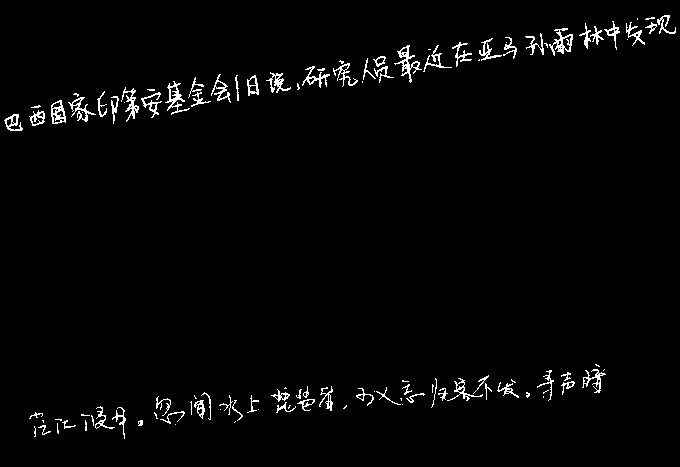 巴西国家印第安基金会1日说,研究人员最近在亚马孙雨林中发现
茫江浸月。忽闻水上琵琶声,主人忘归客不发。寻声暗